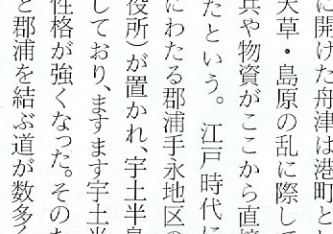 に開けた舟津は港町とし
天草・島原の乱に際して
兵や物資がここから直
たという。江戸時代に
にわたる郡浦手永地区の
役所)が置かれ、宇土半
しており、ますます宇土半
性格が強くなった。そのた
と郡浦を結ぶ道が数多く